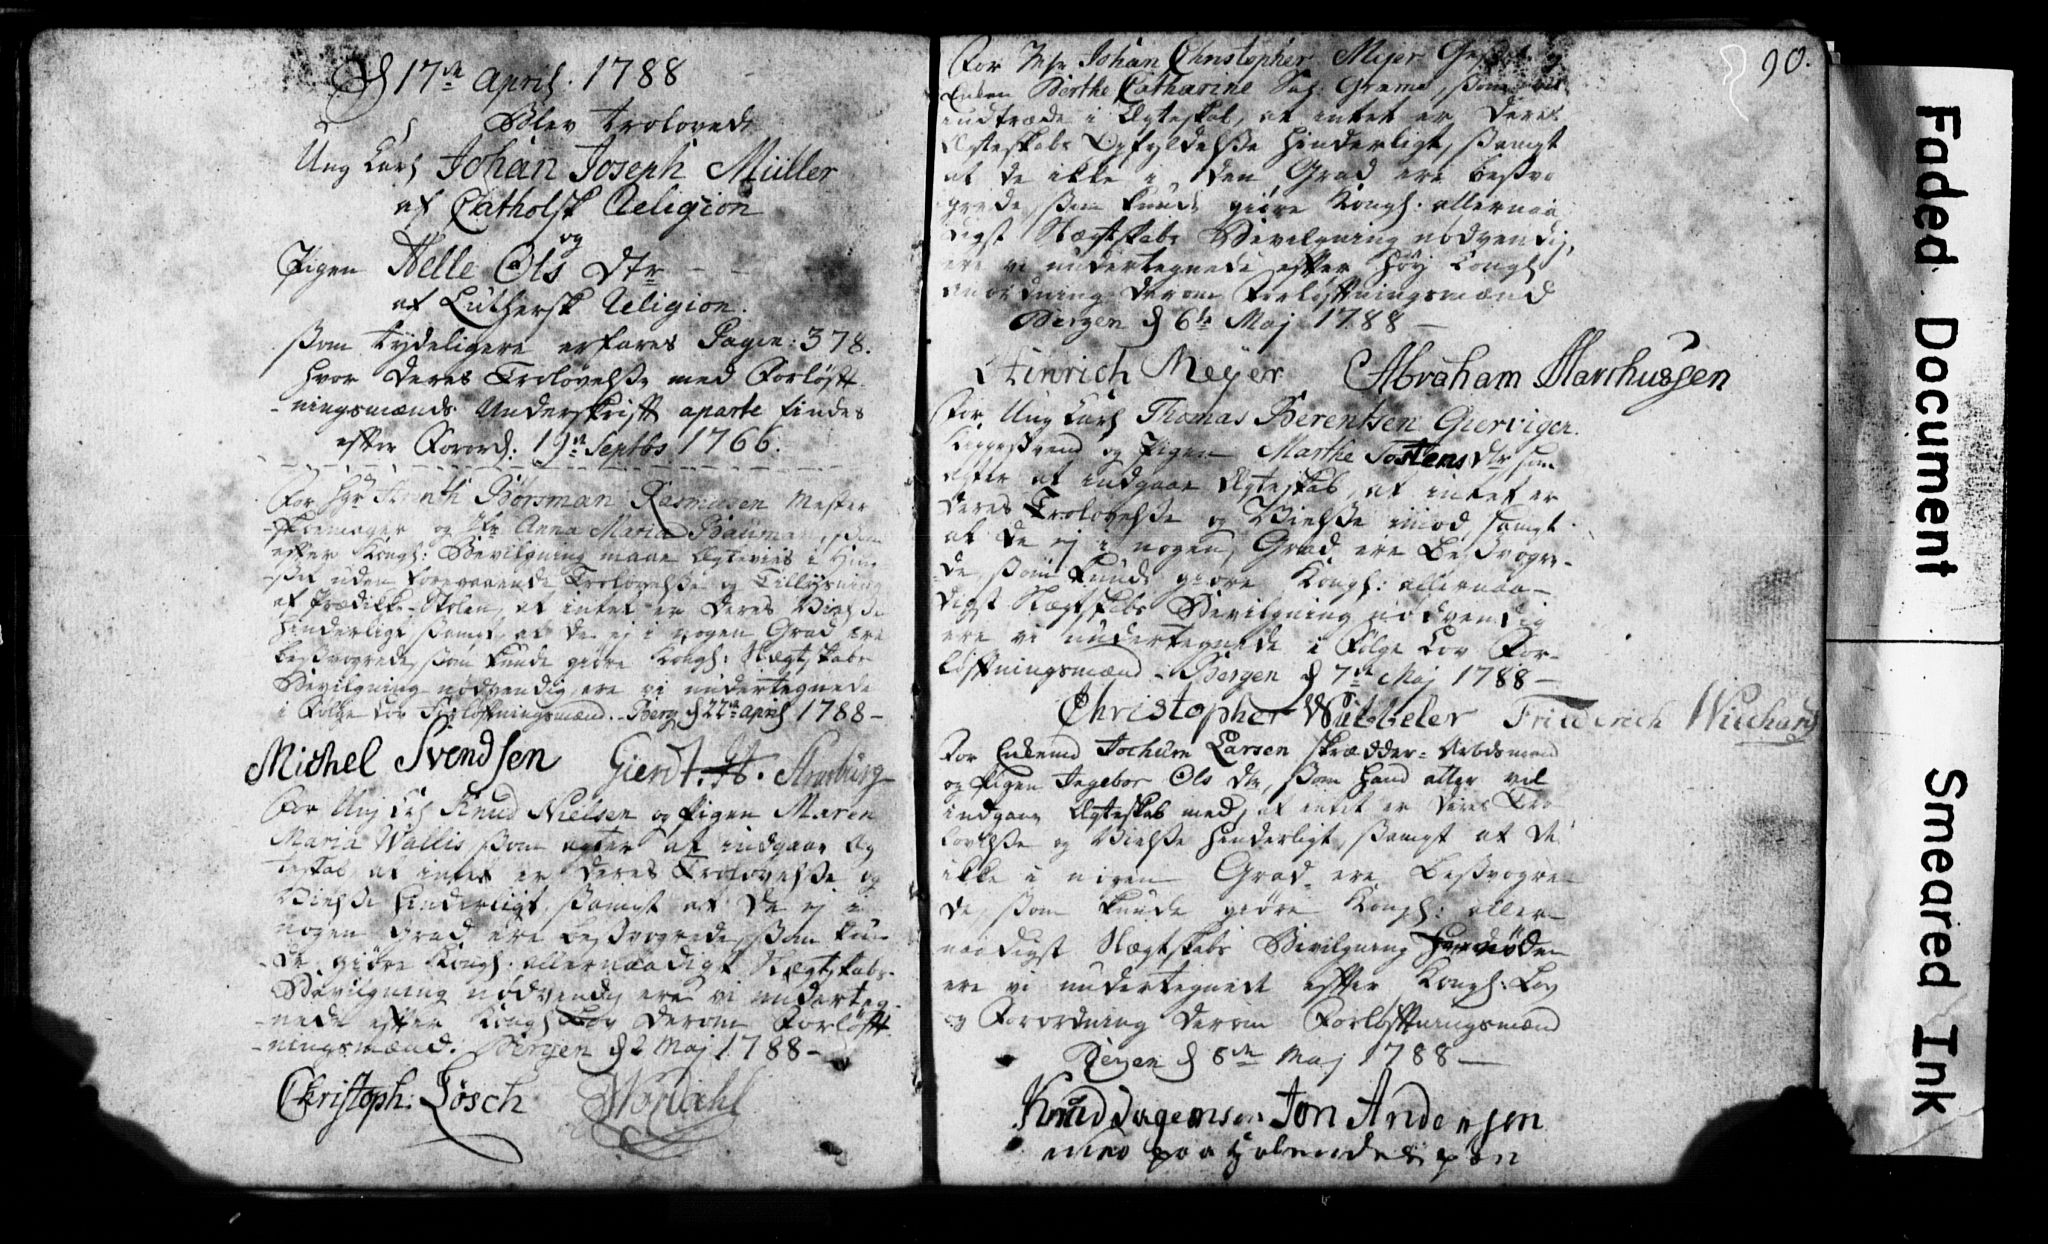 d 17de April. 1788
Blev trolovede
Ung Karl Johan Joseph Müller
af Catholsk Religion
og
Pigen Nelle Ols Dtr
af Luthersk Religion.
som tydeligere erfares Pagin: 378.
hvor deres Trolovelse med Forløft-
-ningsmænds Underskrift aparte findes
efter Forord: 19de Septbs 1766.
For Hr Børsman Rasmusen Mester
og Jfr Anna Maria Bauman, som
efter Kongl: Bevilgning maae Ægtevies i Huu-
-set uden foregaaende Trolovelse og Tillysning
af Prædike-Stolen, at intet er deres Vielse
hinderligt samt at de ej i nogen Grad ere
besvogrede, som kunde giøre Kongl: Slægtskabs
Bevilgning nødvendig, ere vi undertegnede
i Følge Lov Forløftningsmænd. Berg d 22de April 1788-
Michel Svendsen Giert
For Ung Karl Knud Nielsen og Pigen Maren
Maria Wallis som agter at indgaae Æg-
teskab, at intet er deres Trolovelse og
Vielse hinderligt, samt at de ej i
nogen Grad ere besvogrede, som kun-
de giøre Kongl: allernaadigst Slægtskabs-
Bevilgning nødvendig ere vi underteg-
-nede efter Kongl Lov derom Forløft-
-ningsmænd. Bergen d 2 Maj 1788-
Christoph: Lösch
90.
For Johan Christopher Mejer
Enken Berthe Catharine Sal: Grams, som vil
indtræde i Ægteskab, at intet er deres
Ægteskabs Opfyldelse hinderligt, samt
at de ikke i den Grad ere besvo-
grede, som kunde giøre Kongl: allernaa-
digst Slægtskabs Bevilgning nødvendig,
ere vi undertegnede efter høy Kongl
anordning derom Forløftningsmænd
Bergen d 6te Maj 1788-
Hinrich Meyer Abraham Marchussen
For Ung Karl Thomas Berentsen Gierviger.
og Pigen Marthe Tostens Dtr som
agter at indgaae Ægteskab, at intet er
deres Trolovelse og Vielse imod samt
at de ej i nogen Grad ere besvogre-
de, som kunde giøre Kongl: allernaa-
digst Slægtskabs Bevilgning nødvendig
ere vi undertegnede i Følge Lov For-
løftningsmænd. Bergen d 7de Maj 1788-
Christopher Friederich
For Enkemd Jochum Larsen Skrædder-
og Pigen Ingebor Ols Dtr, som hand atter vil
indgaae Ægteskab med, at intet er deres Tro-
lovelse og Vielse hinderligt, samt at de
ikke i nogen Grad ere besvogre-
de, som kunde giøre Kongl: aller-
naadigst Slægtskabs Bevilgning
ere vi undertegnede efter Kongl: Lov
og Forordning derom Forløftningsmænd
Bergen d 8de Maj 1788-
Knud Jon Andersen
Faded Document
Smeared Ink